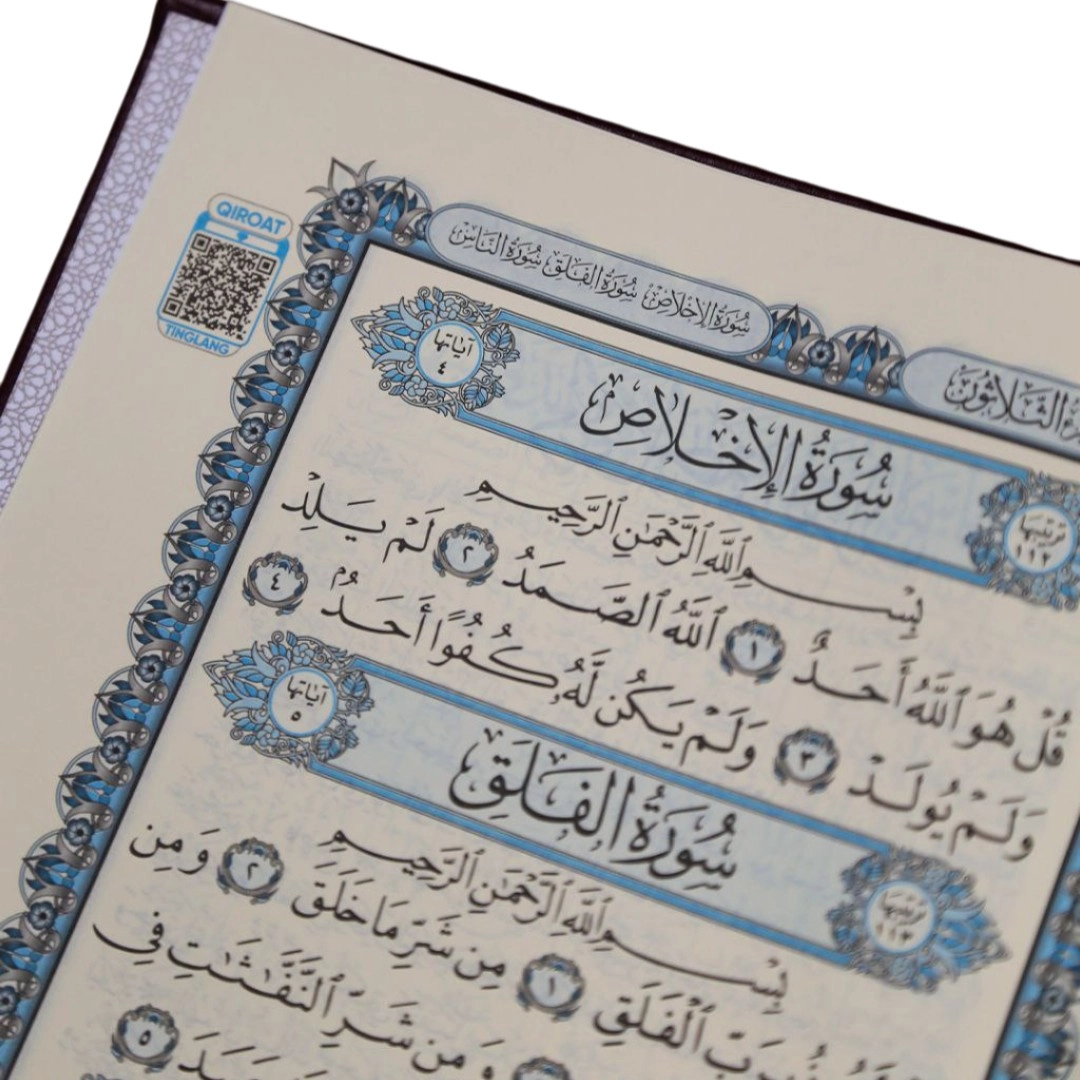 QIROAT
TINGLANG
سُورَةُ الإِخْلَاصِ سُورَةُ الفَلَقِ سُورَةُ النَّاسِ
الثَّلَاثُونَ
آيَاتُهَا
٤
سُورَةُ الإِخْلَاصِ
تَرْتِيبُهَا
١١٢
بِسْمِ ٱللَّهِ ٱلرَّحْمَٰنِ ٱلرَّحِيمِ
قُلْ هُوَ ٱللَّهُ أَحَدٌ ١ ٱللَّهُ ٱلصَّمَدُ ٢ لَمْ يَلِدْ
وَلَمْ يُولَدْ ٣ وَلَمْ يَكُن لَّهُۥ كُفُوًا أَحَدٌۢ ٤
آيَاتُهَا
٥
سُورَةُ الفَلَقِ
تَرْتِيبُهَا
١١٣
بِسْمِ ٱللَّهِ ٱلرَّحْمَٰنِ ٱلرَّحِيمِ
رَبِّ ٱلْفَلَقِ ١ مِن شَرِّ مَا خَلَقَ ٢ وَمِن
وَمِن شَرِّ ٱلنَّفَّٰثَٰتِ فِي
٥